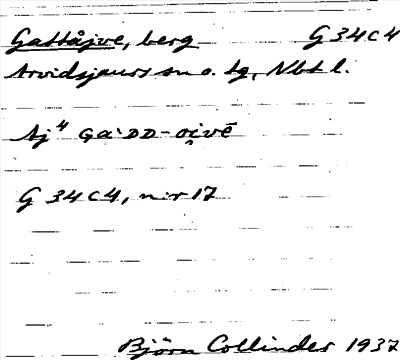 Gattåjve, berg G34C4
Arvidsjaurs sn o. tg, Nbt l.
Aj⁴ GA`DD-oi̯vē
G 34 C 4, n:r 17
Björn Collinder 1937